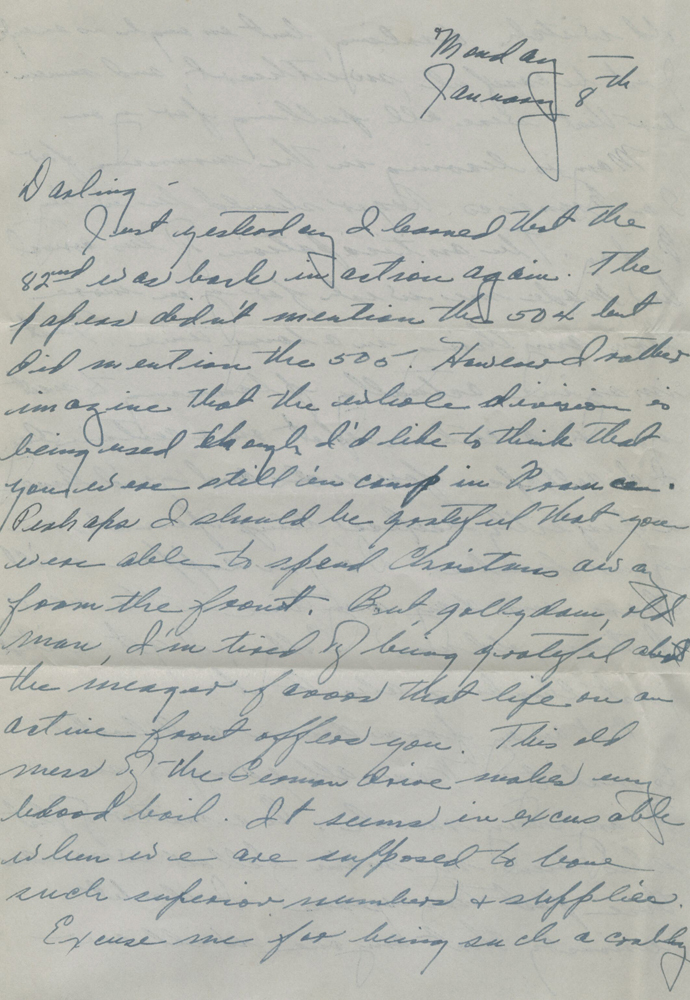 Monday —
January 8th
Darling -
Just yesterday I learned that the
82nd was back in action again. The
papers didn't mention the 504 but
did mention the 505. However I rather
imagine that the whole division is
being used though I'd like to think that
you were still in camp in France.
Perhaps I should be grateful that you
were able to spend Christmas away
from the front. But, gollydam, old
man, I'm tired of being grateful about
the meager favors that life on an
active front offers you. This old
mess of the German drive makes my
blood boil. It seems inexcusable
when we are supposed to have
such superior numbers & supplies.
Excuse me for being such a crabby